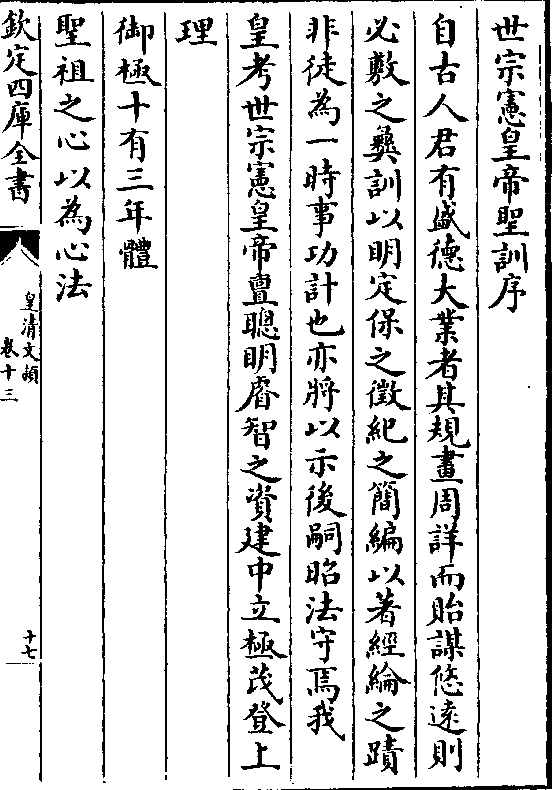 世宗憲皇帝聖訓序
自古人君有盛德大業者其規畫周詳而貽謀悠遠則
必敷之彜訓以明定保之徵紀之簡編以著經綸之蹟
非徒為一時事功計也亦將以示後嗣昭法守焉我
皇考世宗憲皇帝亶聰明睿智之資建中立極茂登上
理
御極十有三年體
聖祖之心以為心法
欽定四庫全書
皇清文頴
卷十三
十七